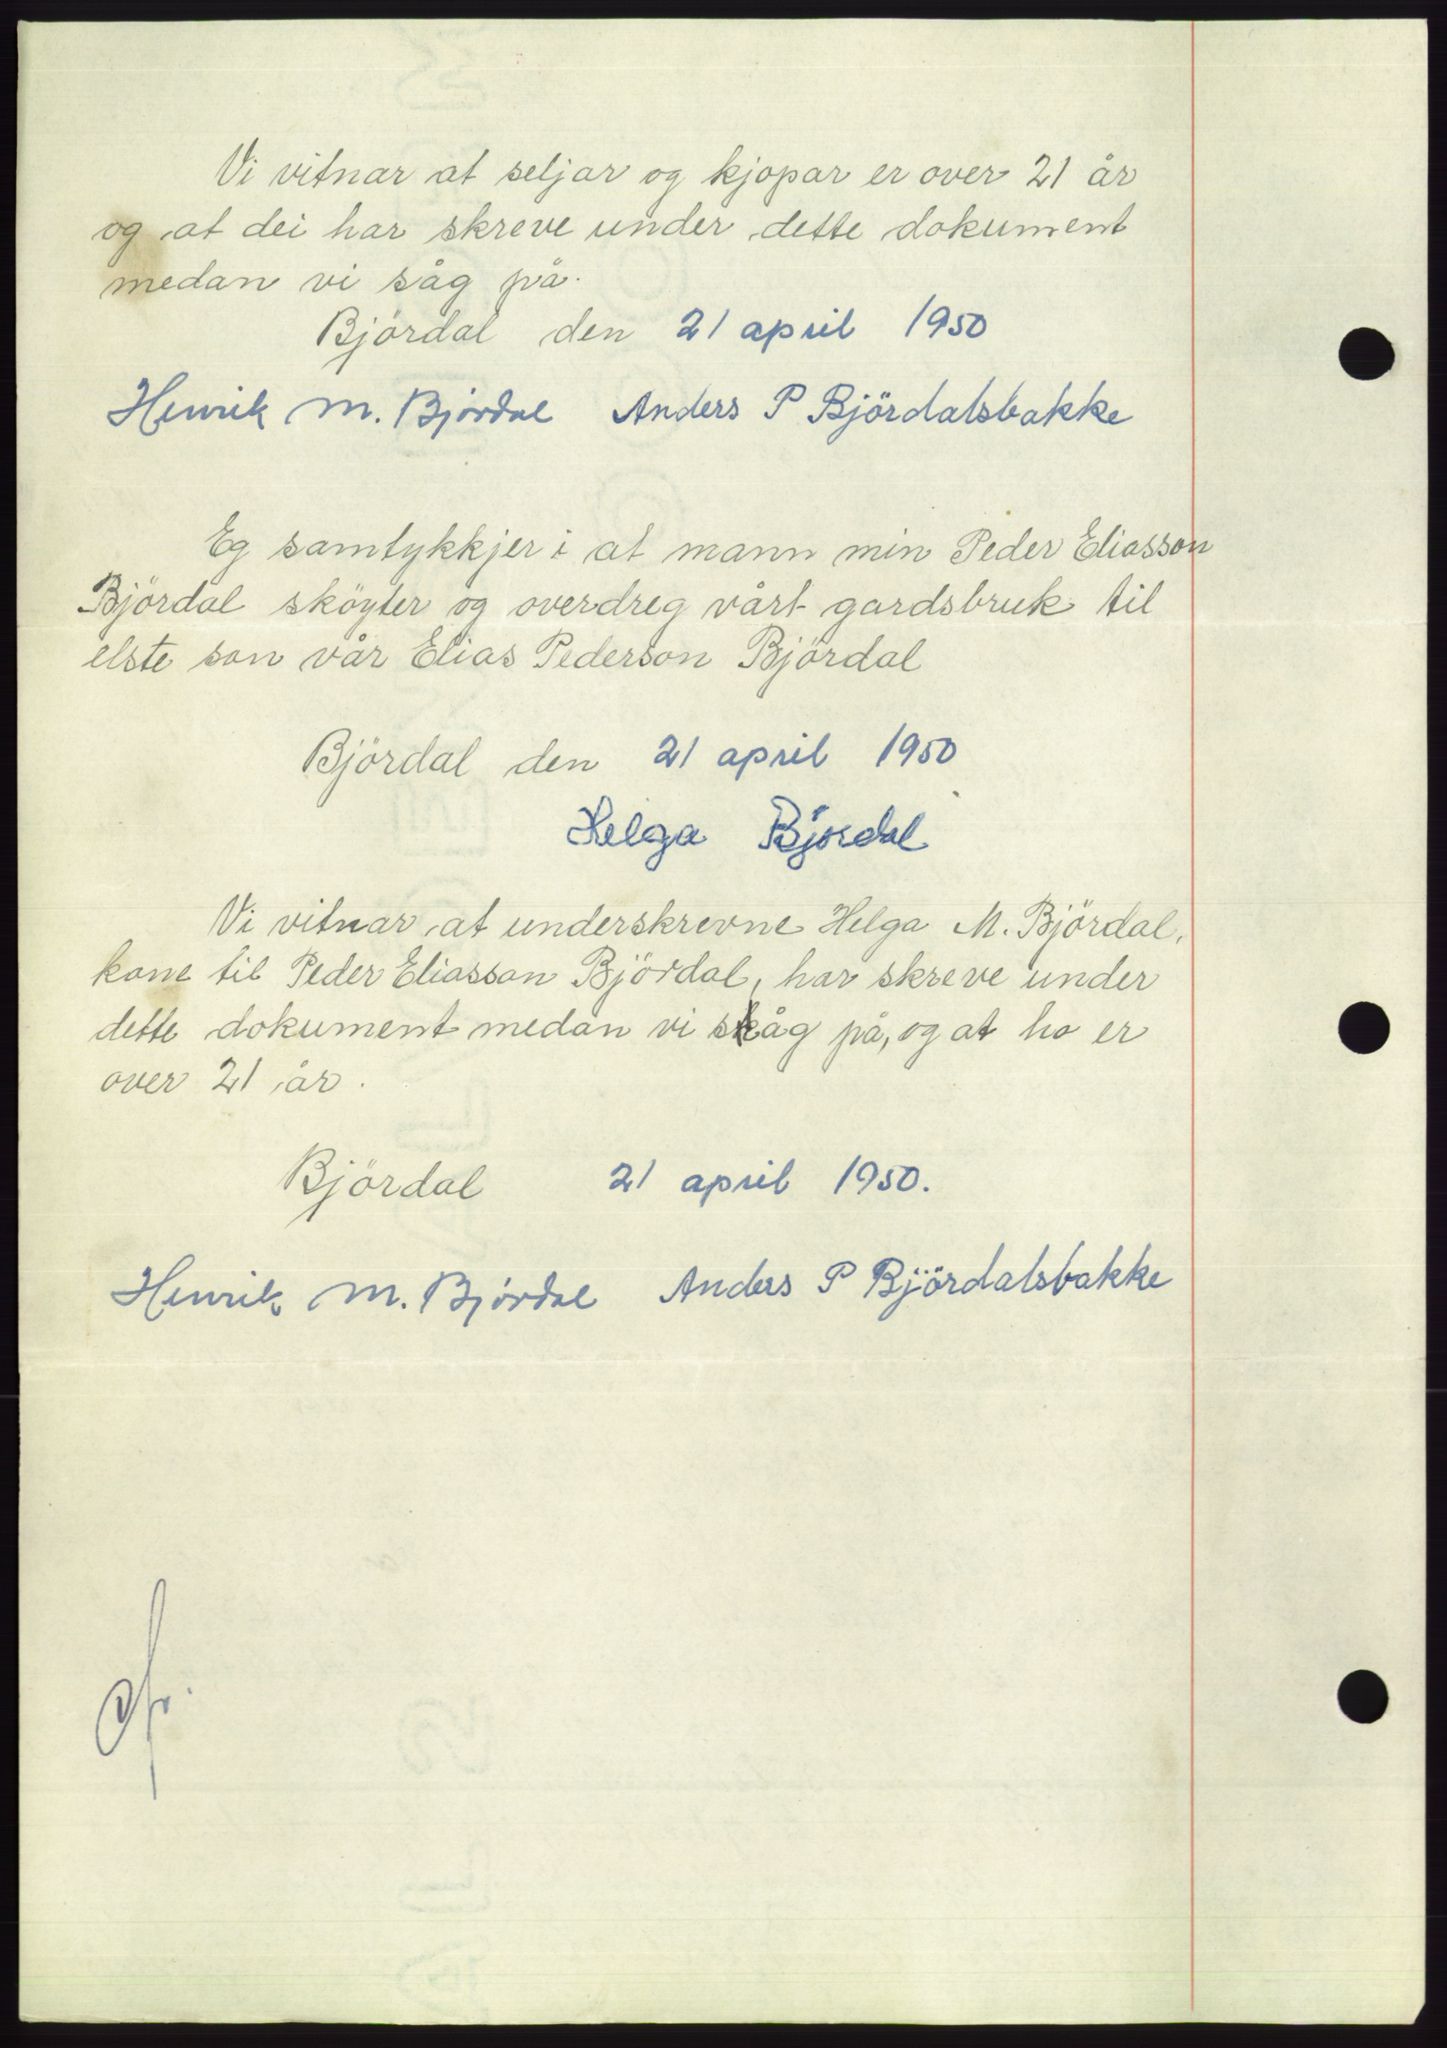 Vi vitnar at seljar og kjopar er over 21 år
og at dei har skreve under dette dokument
medan vi såg på.
Björdal den 21 april 1950
Henrik M. Björdal Anders P Björdalsbakke
Eg samtykkjer i at mann min Peder Eliasson
Björdal sköyter og overdreg vårt gardsbruk til
elste son vår Elias Pederson Björdal
Björdal den 21 april 1950
Helga Björdal
Vi vitnar at underskrevne Helga M. Björdal,
kone til Peder Eliasson Björdal, har skreve under
dette dokument medan vi såg på, og at ho er
over 21 år.
Björdal 21 april 1950.
Henrik M. Björdal Anders P Björdalsbakke